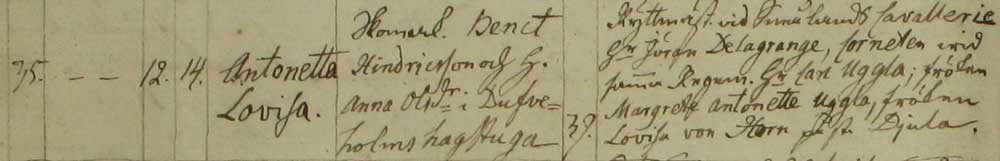 35. – – 12. 14. Antonetta Lovisa.
Skomak. Benct
Hindricsson och H.
Anna Olsdr. i Dufve=
holms hagstuga
39.
Ryttmäst. vid Smulands Cavallerie
Hr Jöran Delagrange, Corneten vid
samma Regem. Hr Carl Uggla; fröken
Margreta Antonette Uggla, fröken
Lovisa von Horn på st. Djula.